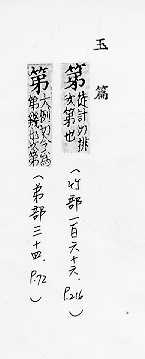 玉篇
第 徒計切排
次第也
(竹部一百六十六. P.216)
第 大例切今為
第幾也次第
(弟部三十四. P.72)